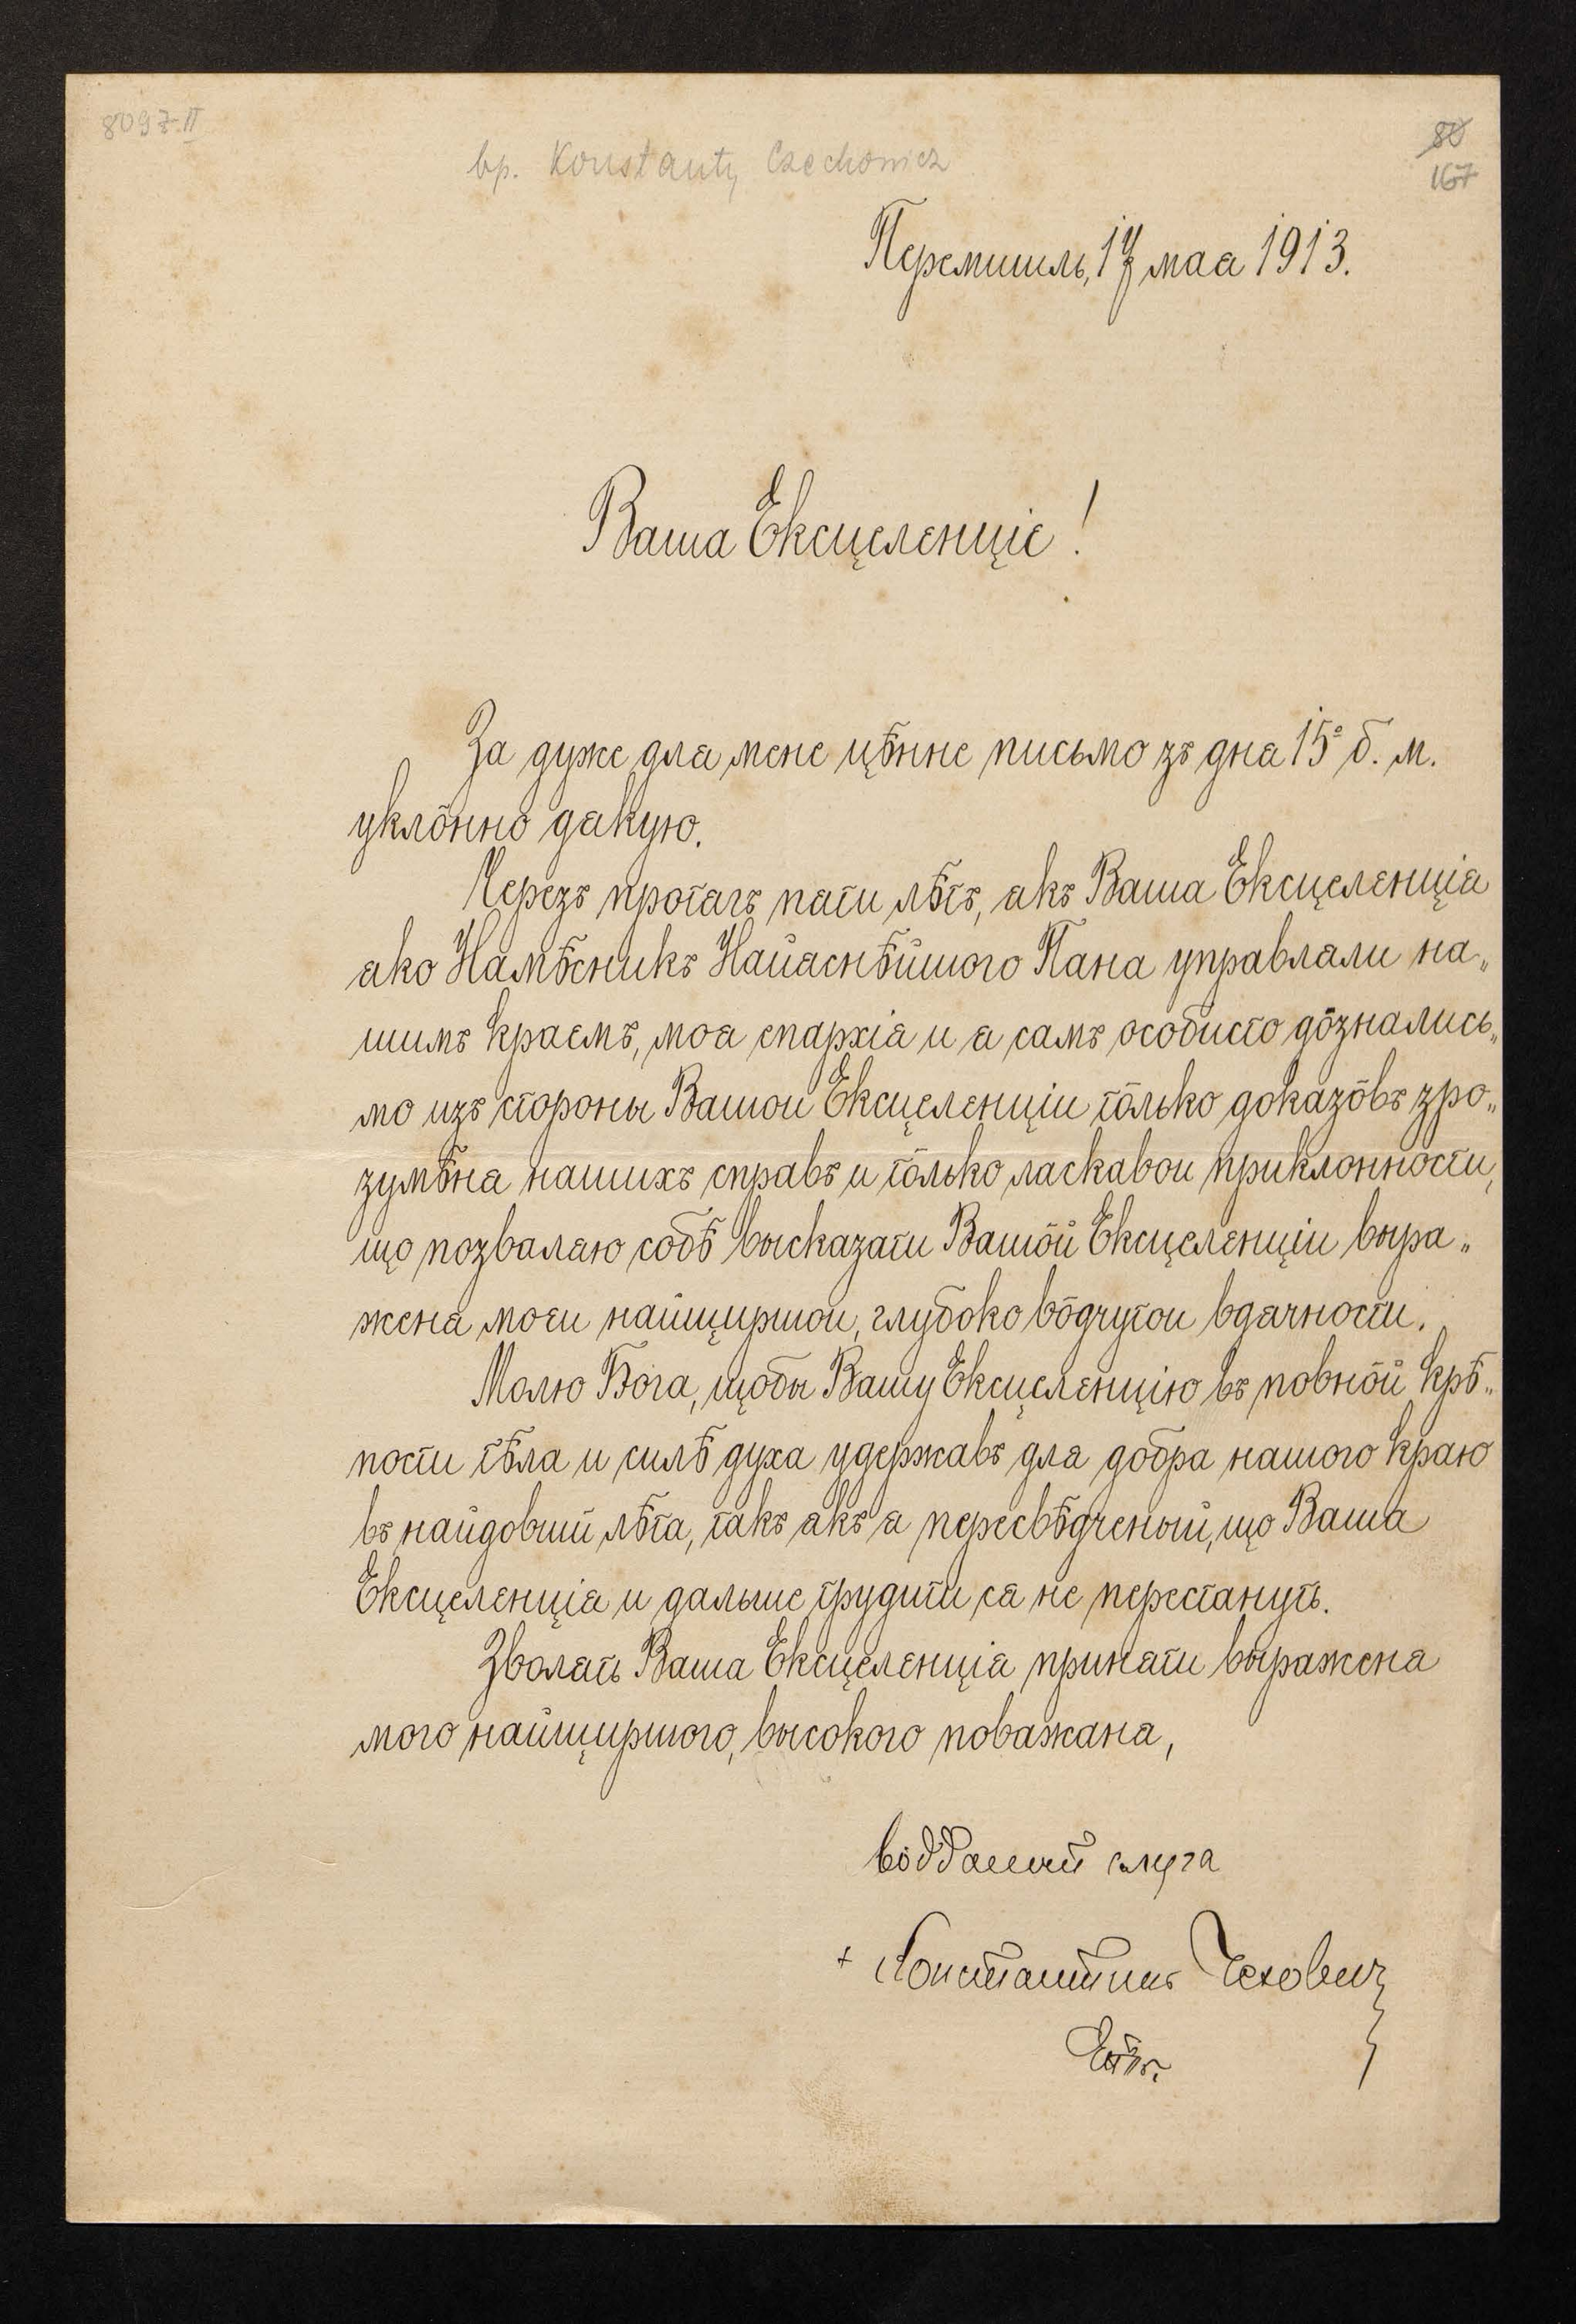 8097 II
80
bp. Konstanty Czechowicz
167
Перемишль, 17 мая 1913.
Ваша Ексцеленціє!
За дуже для мене цѣнне письмо зъ дня 15º б. м.
уклôнно дякую.
Черезъ протягъ пяти лѣтъ, якъ Ваша Ексцеленція
яко Намѣсникъ Найяснѣйшого Пана управляли на„
шимъ краємъ, моя епархія и я самъ особисто дôзнались„
мо изъ стороны Вашои Ексцеленціи тôлько доказôвъ зро„
зумѣня нашихъ справъ и тôлько ласкавои приклонности,
що позваляю собѣ высказати Вашôй Ексцеленціи выра„
женя моєи найщиршои, глубоко вôдчутои вдячности.
Молю Бога, щобы Вашу Ексцеленцію въ повнôй крѣ„
пости тѣла и силѣ духа удержавъ для добра нашого краю
въ найдовший лѣта, такъ якъ я пересвѣдченый, що Ваша
Ексцеленція и дальше трудити ся не перестануть.
Зволять Ваша Ексцеленція приняти выраженя
мого найщиршого, высокого поважаня,
вôдданый слуга
+ Константинъ Чехович
Епъ.